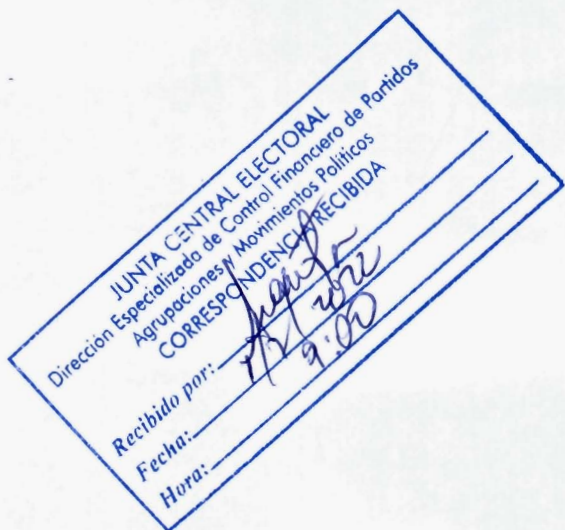 JUNTA CENTRAL ELECTORAL
Dirección Especializada de Control Financiero de Partidos
Agrupaciones y Movimientos Políticos
CORRESPONDENCIA RECIBIDA
Recibido por:
Fecha: 2022
Hora: 9:00